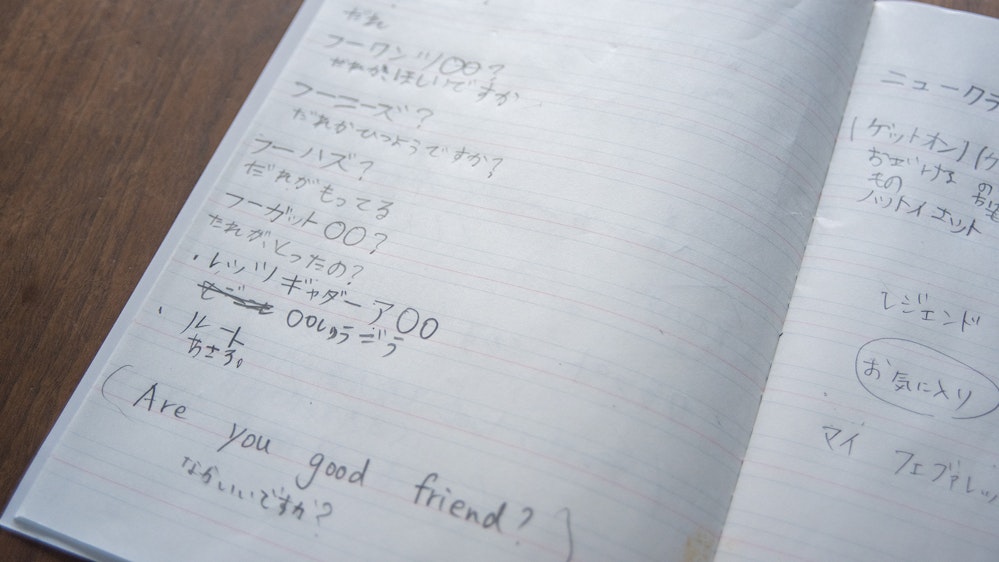 だれ
フーワンツ〇〇?
だれがほしいですか
フーニーズ?
だれがひつようですか?
フーハズ?
だれがもってる
フーガット〇〇?
だれがとったの?
・レッツギャダーア〇〇
〇〇しゅうごう
・ルート
あさる。
(Are you good friend?)
なかいいですか?
ニュークラ
(ゲットオン)(ケ
おせげる
もの
ハットイエット
レジェンド
お気に入り
・マイ フェブァレッ